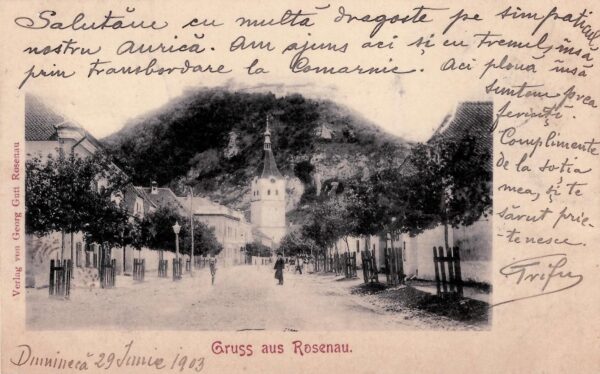 Salutăm cu multă dragoste pe simpaticul
nostru Aurică. Am ajuns aci și cu trenul, însă
prin transbordare la Comarnic. Aci plouă însă
suntem prea
fericiți.
Complimente
de la soția
mea, și te
sărut prie-
tenescu.
Trifu
Verlag von Georg Gutt Rosenau
Gruss aus Rosenau.
Duminecă 29 Iunie 1903